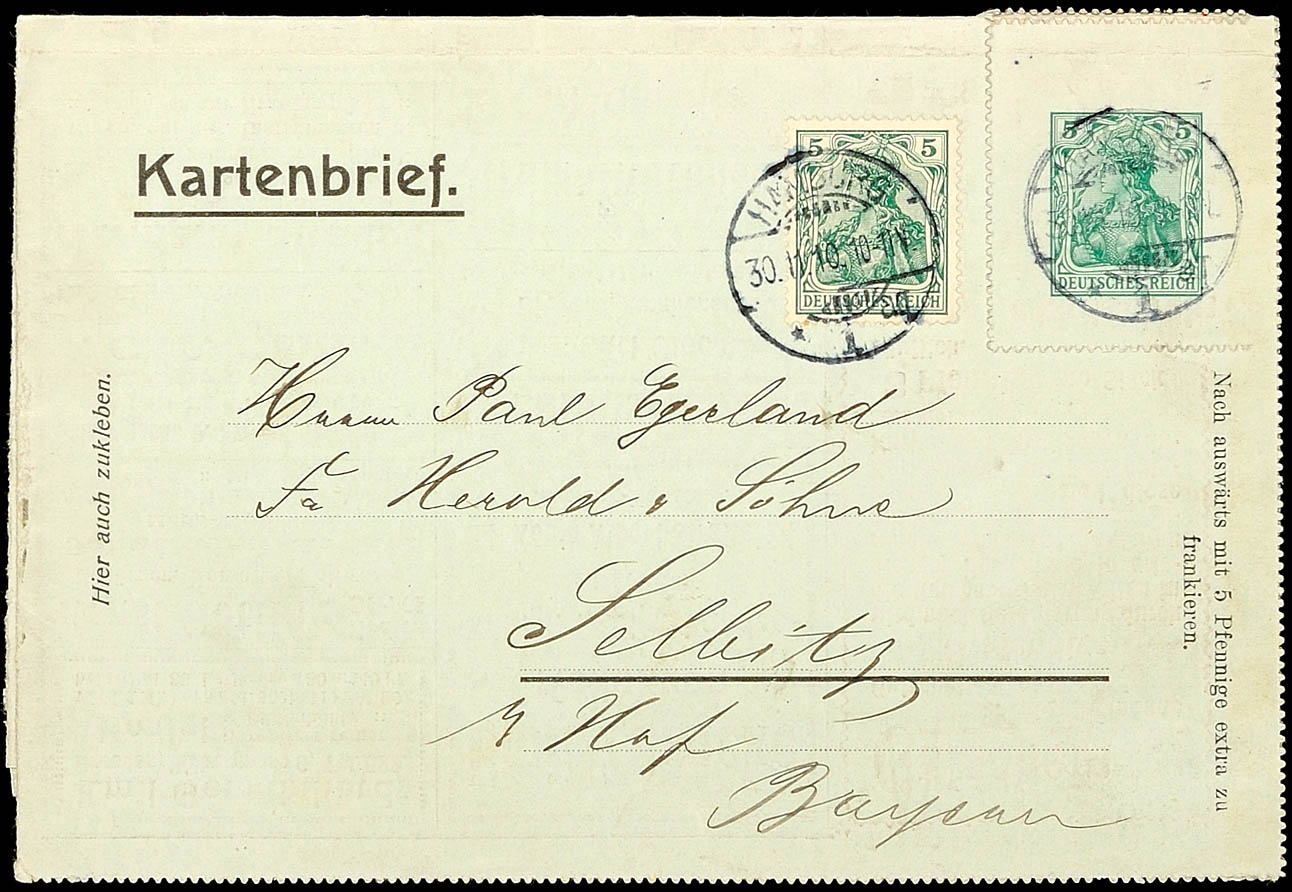 Kartenbrief.
5 5
DEUTSCHES REICH
HAMBURG
30.11.10. 10-11V.
* 1
5 5
DEUTSCHES REICH
1
Hier auch zukleben.
Herrn Paul Egerland
Fa Herold & Söhne
Selbitz
Hof
Bayern
Nach auswärts mit 5 Pfennige extra zu
frankieren.